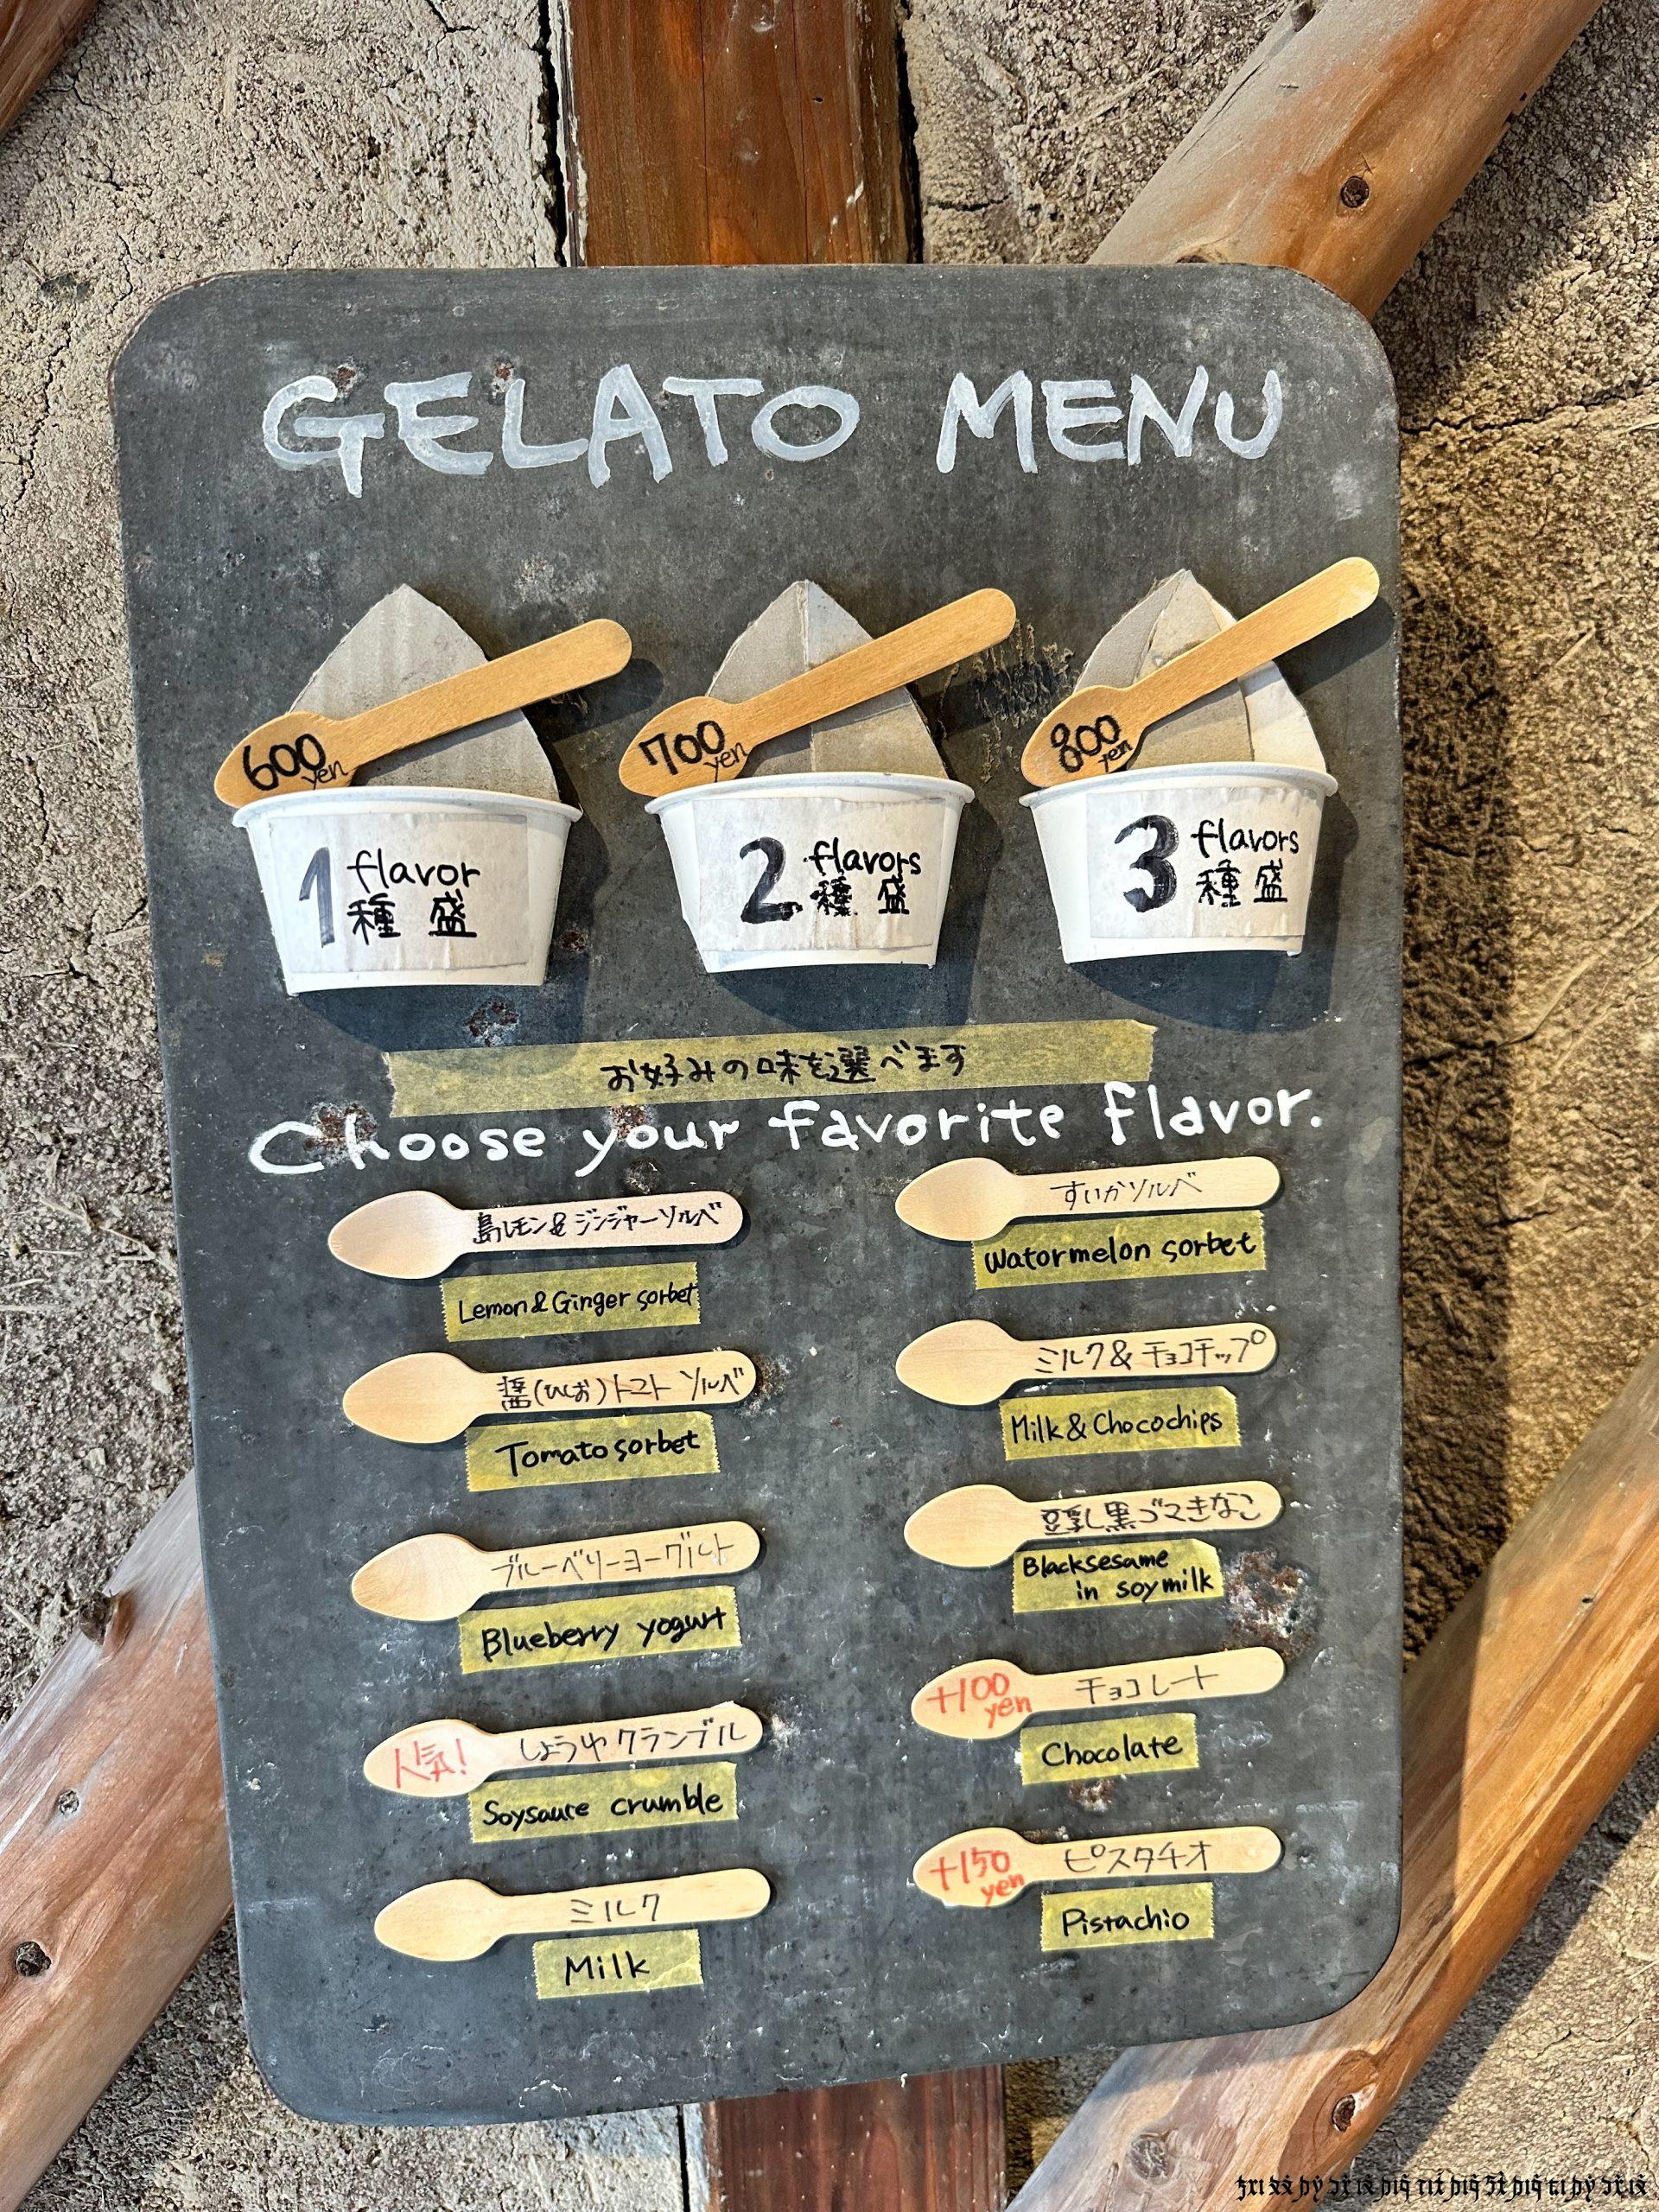 GELATO MENU
600 yen
700 yen
800 yen
1 flavor
種 盛
2 flavors
種 盛
3 flavors
種 盛
お好みの味を選べます
Choose your favorite flavor.
島レモン&ジンジャーソルベ
Lemon & Ginger sorbet
醤(ひしお)トマト ソルベ
Tomato sorbet
ブルーベリーヨーグルト
Blueberry yogurt
人気!
しょうゆクランブル
Soysauce crumble
ミルク
Milk
すいかソルベ
Watormelon sorbet
ミルク& チョコチップ
Milk & Chocochips
豆乳黒ゴマきなこ
Blacksesame
in soymilk
+100
yen
チョコレート
Chocolate
+150
yen
ピスタチオ
Pistachio